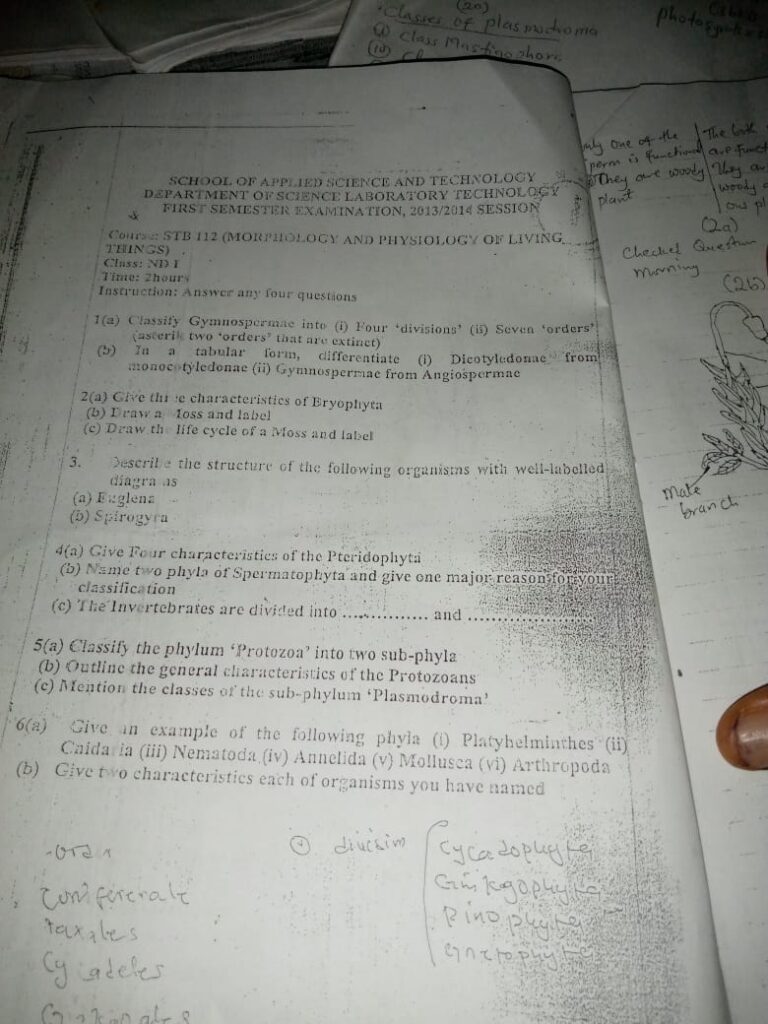 (20)
Classes of plasmodroma
(i) Class Mastigophora
(ii)
only one of the
perm is functional
They are woody
plant
The both
are funct
They are
woody
(2a)
Checked Question
morning
(2b)
Male
branch
SCHOOL OF APPLIED SCIENCE AND TECHNOLOGY
DEPARTMENT OF SCIENCE LABORATORY TECHNOLOGY
FIRST SEMESTER EXAMINATION, 2013/2014 SESSION
Course: STB 112 (MORPHOLOGY AND PHYSIOLOGY OF LIVING
THINGS)
Class: ND I
Time: 2hours
Instruction: Answer any four questions
1(a) Classify Gymnospermae into (i) Four 'divisions' (ii) Seven 'orders'
(asterik two 'orders' that are extinct)
(b) In a tabular form, differentiate (i) Dicotyledonae from
monocotyledonae (ii) Gymnospermae from Angiospermae
2(a) Give three characteristics of Bryophyta
(b) Draw a Moss and label
(c) Draw the life cycle of a Moss and label
3. Describe the structure of the following organisms with well-labelled
diagrams
(a) Euglena
(b) Spirogyra
4(a) Give Four characteristics of the Pteridophyta
(b) Name two phyla of Spermatophyta and give one major reason for your
classification
(c) The Invertebrates are divided into ............... and ......................
5(a) Classify the phylum 'Protozoa' into two sub-phyla
(b) Outline the general characteristics of the Protozoans
(c) Mention the classes of the sub-phylum 'Plasmodroma'
6(a) Give an example of the following phyla (i) Platyhelminthes (ii)
Cnidaria (iii) Nematoda (iv) Annelida (v) Mollusca (vi) Arthropoda
(b) Give two characteristics each of organisms you have named
division
Cycadophyta
Ginkgophyta
Pinophyta